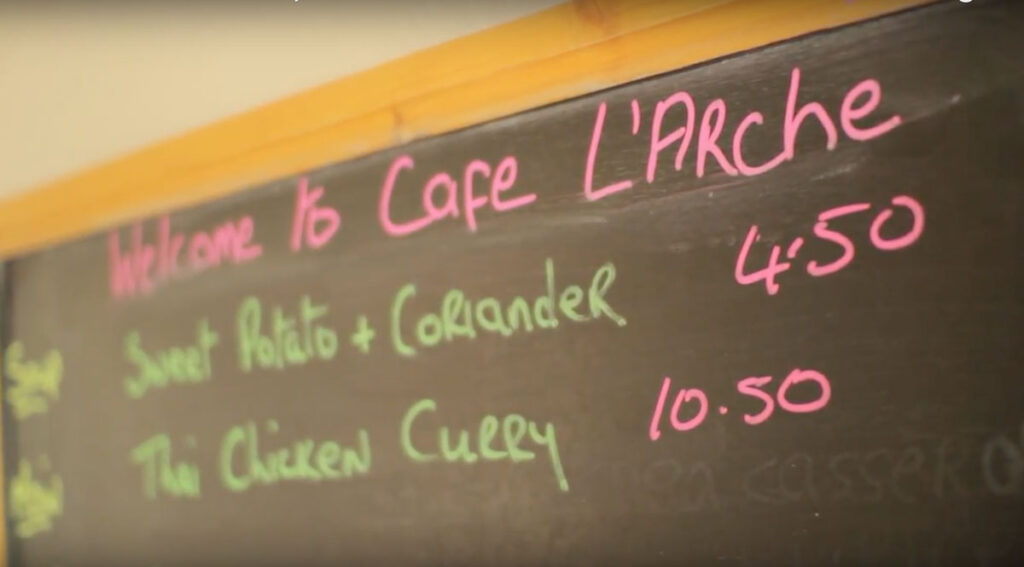 Welcome to Cafe L'ARche
Soup Sweet Potato + CoRianderR 4.50
Thai Chicken CuRRy 10.50
casseRo